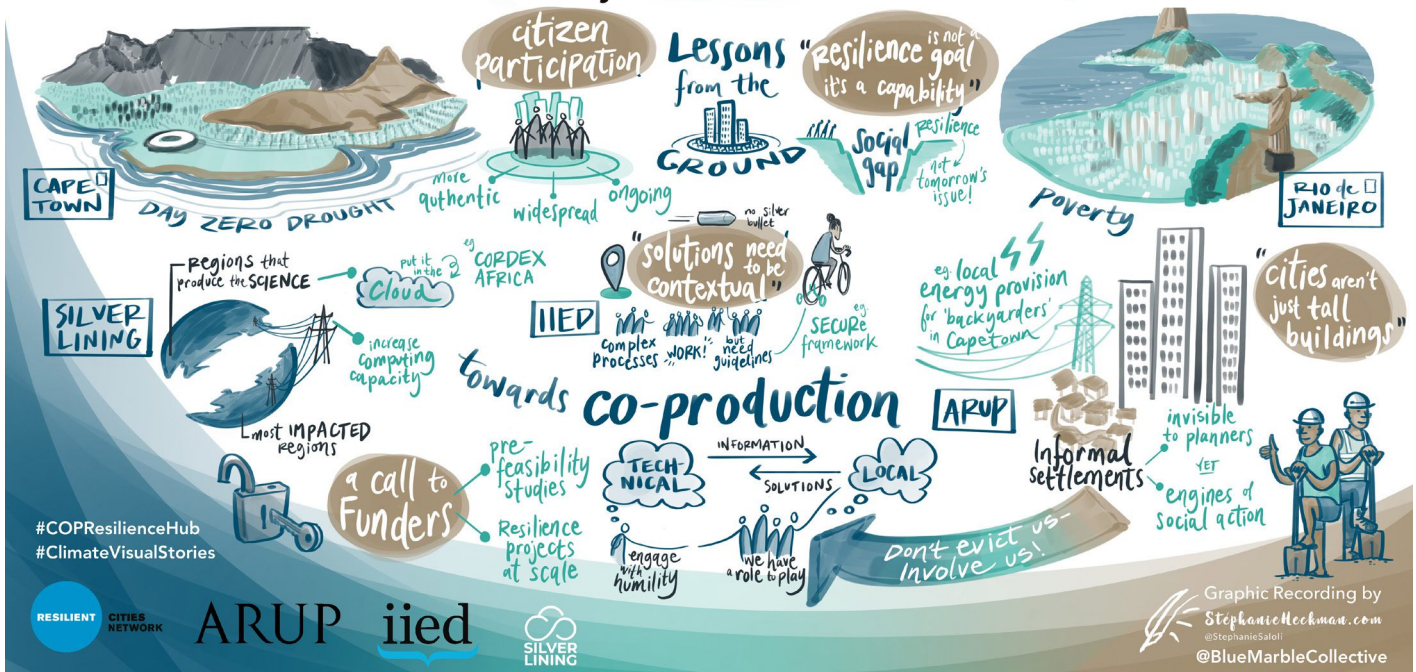 citizen
participation
more
authentic
widespread
ongoing
Lessons
from the
GROUND
"Resilience is not a
goal
it's a capability"
social
gap
resilience
not
tomorrow's
issue!
CAPE
TOWN
DAY ZERO DROUGHT
POVERTY
RIO de
JANEIRO
SILVER
LINING
Regions that
produce the SCIENCE
put it
in the
Cloud
eg
CORDEX
AFRICA
increase
computing
capacity
most IMPACTED
REGIONS
no silver
bullet
"solutions need
to be
contextual"
IIED
complex
processes
WORK!
but
need
guidelines
eg
SECURE
framework
eg. local
energy provision
for 'backyarders'
in Capetown
"cities aren't
just tall
buildings"
towards
co-production
ARUP
Informal
settlements
invisible
to planners
YET
engines of
social action
a call to
Funders
pre-
feasibility
studies
Resilience
projects
at scale
TECH-
NICAL
INFORMATION
SOLUTIONS
LOCAL
engage
with
humility
we have
a role to play
Don't evict us-
Involve us!
#COPResilienceHub
#ClimateVisualStories
RESILIENT CITIES
NETWORK
ARUP
iied
SILVER
LINING
Graphic Recording by
StephanieHeckman.com
@StephanieSaloli
@BlueMarbleCollective